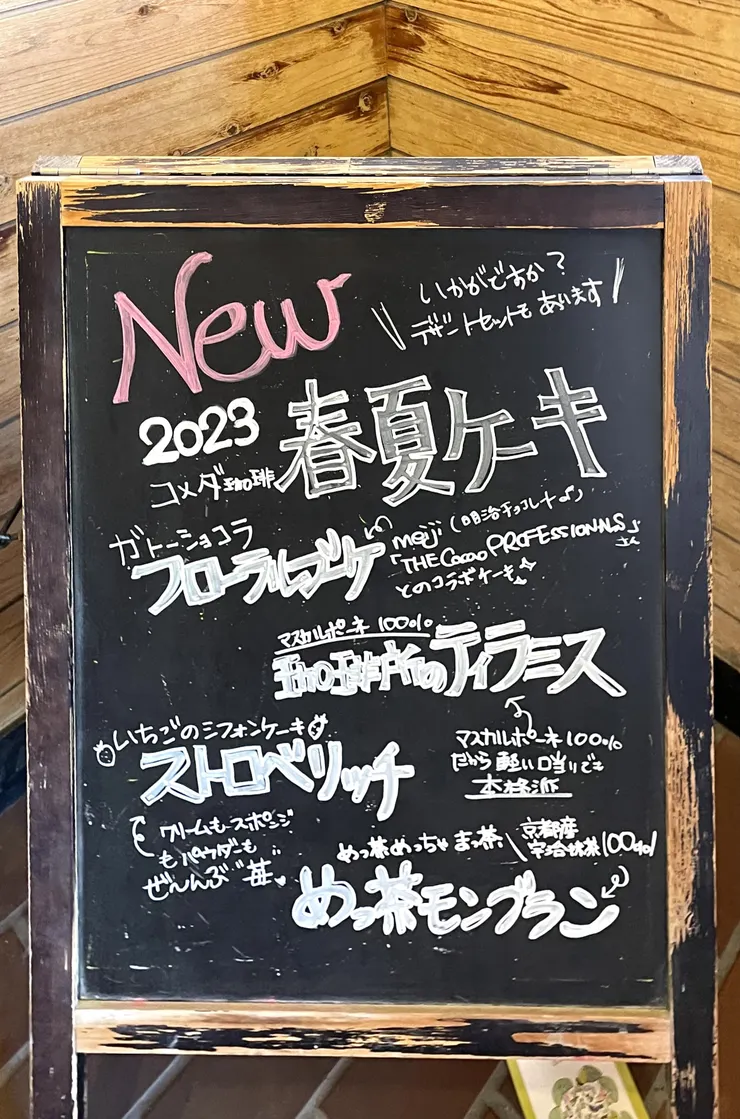 New
いかがですか？
デザートセットもあります
2023
コメダ珈琲
春夏ケーキ
ガトーショコラ
フローラルブーケ
meiji（明治チョコレート♪）
「THE Cacao PROFESSIONALS」さん
とのコラボケーキ
マスカルポーネ100%
珈琲所のティラミス
マスカルポーネ100%
だから軽い口当りでも
本格派
いちごのシフォンケーキ
ストロベリッチ
クリームもスポンジ
もパウダーも
ぜーんぶ苺
めっ茶めっちゃまっ茶
京都産
宇治抹茶100%
めっ茶モンブラン